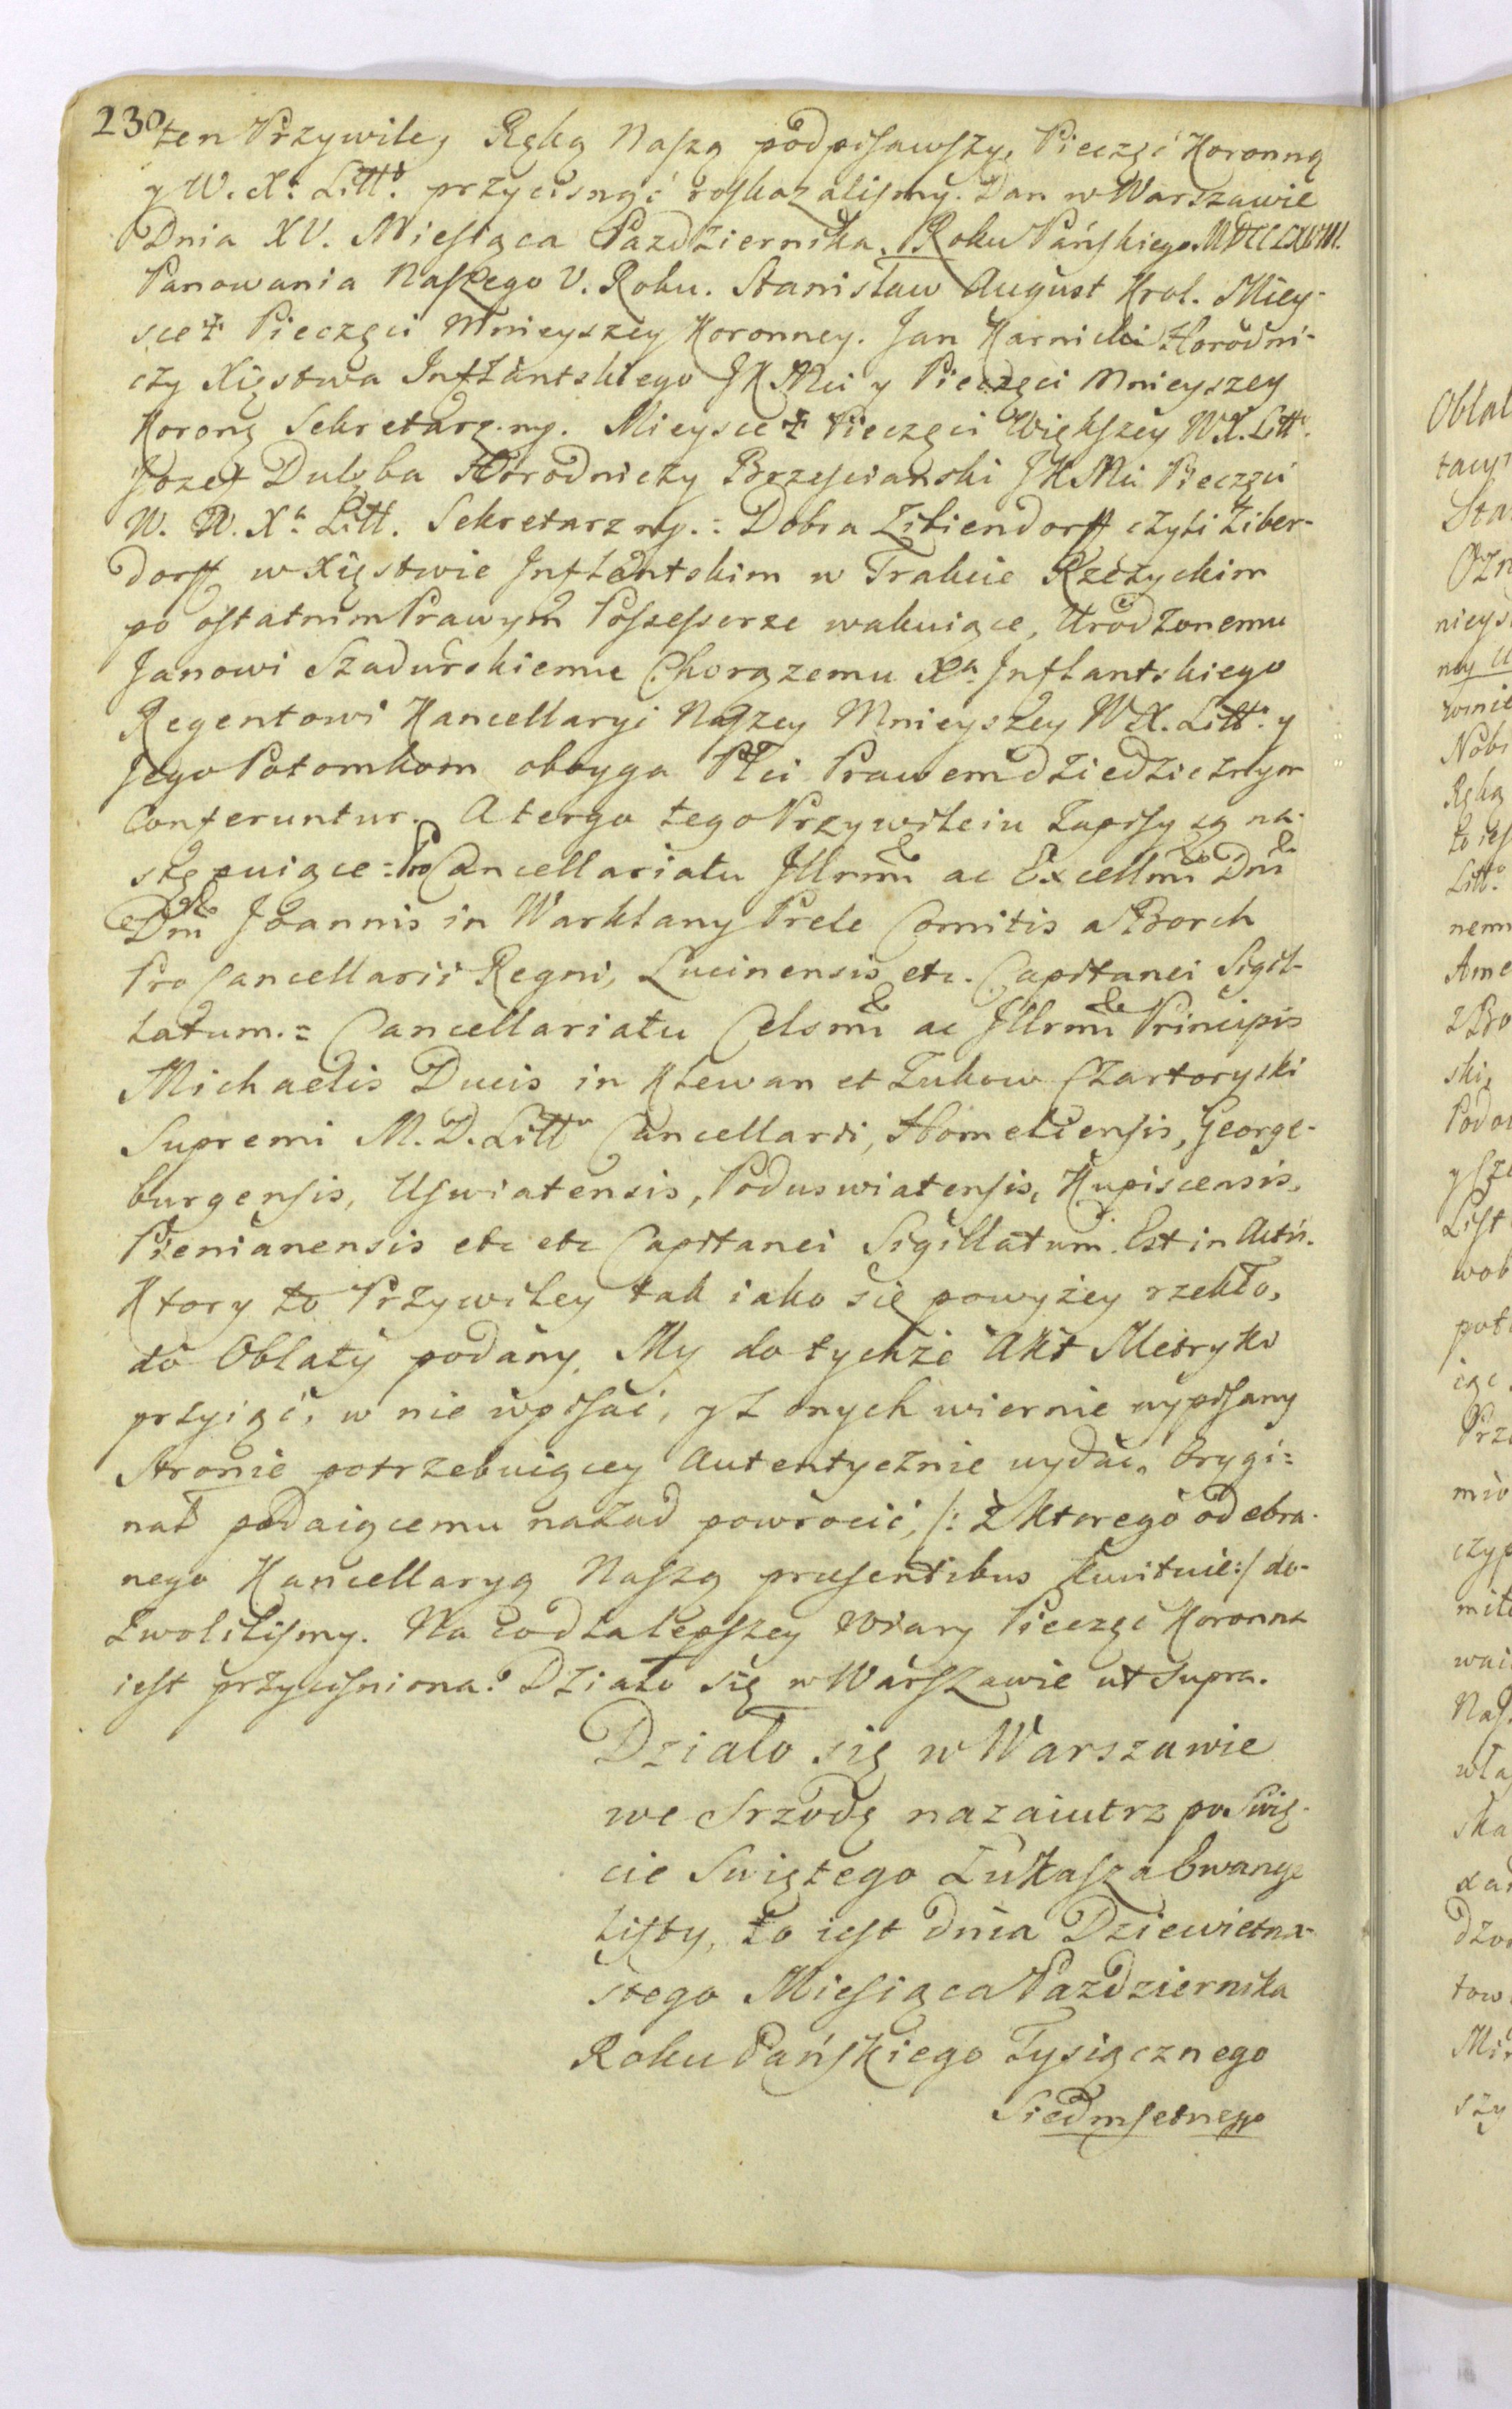 230
ten Przywiley Ręką Naszą podpisawszy, Pieczęć Koronną
y W. Xa. Litto. przycisnąć roskazalismy. Dan w Warszawie
Dnia XV. Miesiąca Pazdziernika. Roku Pańskiego. MDCCLXVIII.
Panowania Naszego V. Roku. Stanisław August Krol. Miey-
sce ☩ Pieczęci Mnieyszey Koronney. Jan Karnicki Horodni-
czy Xięstwa Inflantskiego JKMci y Pieczęci Mnieyszey
Korony Sekretarz. mp. Mieysce ☩ Pieczęci Większey WX. Litto.
Jozef Dulęba Horodniczy Brzescianski JKMci Pieczęci
W. W. Xa. Litt. Sekretarz mp. = Dobra Zibiendorff czyli Ziber-
dorff w Xięstwie Inflantskim w Trakcie Rzeżyckim
po ostatnim Prawym Possessorze wakuiące, Urodzonemu
Janowi Szadurskiemu Chorązemu Xa. Inflantskiego
Regentowi Kancellaryi Naszey Mnieyszey WX. Litto. y
Jego Potomkom oboyga Płci Prawem dziedzicznym
Conferuntur. A tergo tego Przywileiu Zapisy są na-
stępuiące: Pro Cancellariatu Illrmi ac Excellmi Dni
Dni Joannis in Warklany Prele Comitis a Borch
Pro Cancellarii Regni, Lucinensis etc. Capitanei Sigil-
latum. = Cancellariatu Celsmi ac Illrmi Principis
Michaelis Ducis in Klewan et Zukow Czartoryski
Supremi M. D. Litto Cancellarii, Homeliensis, George-
burgensis, Uswiatensis, Poduswiatensis, Kupiscensis,
Pienianensis etc etc Capitanei Sigillatum. Est in Actis.
Ktory to Przywiley tak iako się powyżey rzekło,
do Oblaty podany, My do tychże Akt Metryki
przyiąć, w nie wpisać, y z onych wiernie wypisany
Stronie potrzebuiącey Autentycznie wydać, Orygi=
nał podaiącemu nazad powrocić, /: z ktorego odebra-
nego Kancellaryą Naszą præsentibus kwituie :/ do-
zwolilismy. Na co dla lepszey wiary Pieczęć Koronna
iest przycisniona. Działo się w Warszawie ut supra.
Działo się w Warszawie
we Srzodę nazaiutrz po Swię-
cie Swiętego Łukasza Ewange
listy, to iest dnia Dziewietna-
stego Miesiąca Pazdziernika
Roku Pańskiego Tysiącznego
Siedmsetnego